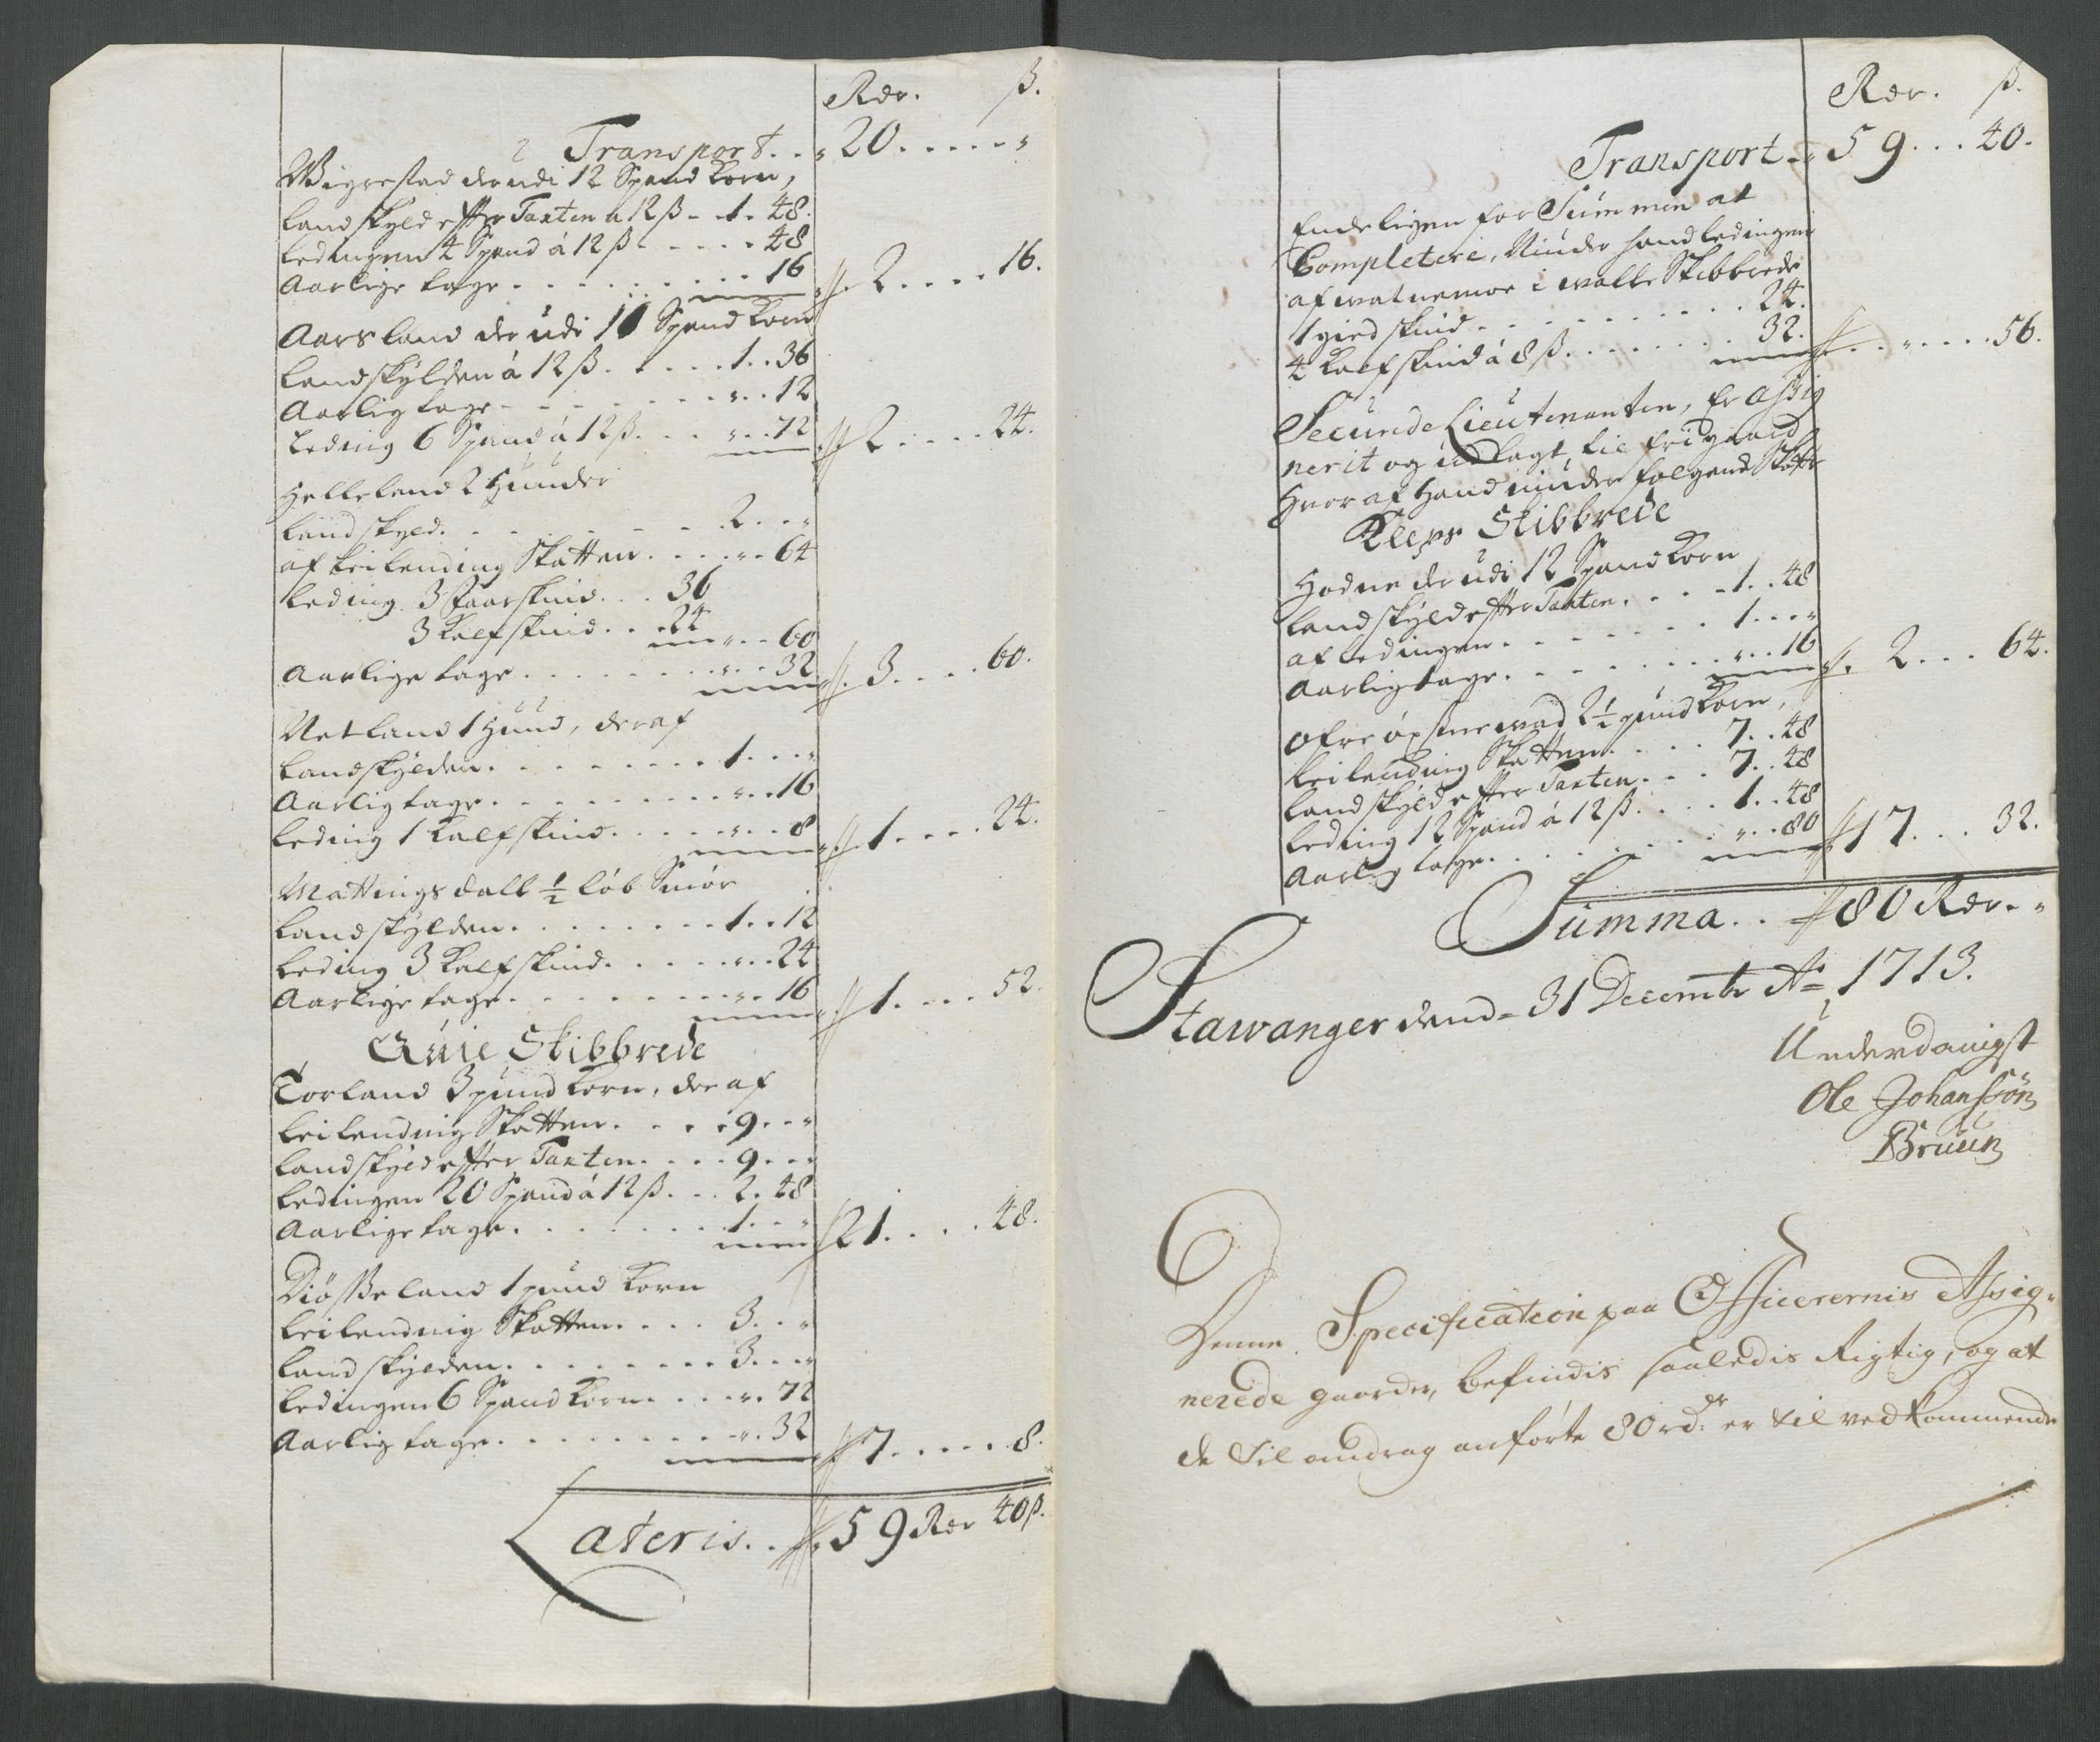 Rdr. ß.
Transport . . „ 20 . . . . . „
Wigrestad der udi 12 Spand Korn,
Landskyld effter Taxten a 12 ß - 1. 48.
Ledingen 4 Spand á 12 ß . . . . . 48
Aarlige tage . . . . . . . . . 16 „ 2 . . . . 16.
Aarsland der udi 11 Spand Korn
Landskylden á 12 ß . . . . . 1 . . 36
Aarlig tage . . . . . . . . „ . . 12
Leding 6 Spand á 12 ß . . . „ . . 72 2 . . . . 24.
Helleland 2 Huuder
Landskyld . . . . . . . . . 2 . . „
af Leilending Skatten . . . . „ . . 64
Leding 3 Faarskind . . . 36
3 Kalfskind . . 24 „ . . 60
Aarlige tage . . . . . . . . „ . . 32 3 . . . . 60.
Netland 1 Huud, deraf
Landskylden . . . . . . . . 1 . . . „
Aarlig tage . . . . . . . . . „ . . 16
Leding 1 Kalfskind . . . . . „ . . 8 1 . . . . 24.
Mattingsdall ½ løb Smør
Landskylden . . . . . . . . 1 . . 12
Leding 3 Kalfskind . . . . . „ . . 24
Aarlige tage . . . . . . . . . „ . 16 1 . . . . 52.
Qvie Skibbrede
Torland 3 pund Korn, der af
Leilending Skatten . . . . 9 . . „
Landskyld effter Taxten . . . . 9 . . . „
Ledingen 20 Spand á 12 ß . . . 2. 48
Aarlige tage . . . . . . . . 1 . . „ 21 . . . . 48.
Diøsseland 1 pund Korn
Leilending Skatten . . . . 3 . . „
Landskylden . . . . . . . . 3 . . . „
Ledingen 6 Spand Korn . . . . „ . 72
Aarlig tage . . . . . . . . . „ . 32 7 . . . . . 8.
Lateris . . 59 Rdr 40 ß.
Rdr. ß.
Transport - „ 59 . . . 40.
Endeligen for Summen at
Completere, Niuder hand Ledingen
af watnemoe i walle Skibbrede
1 gied skind . . . . . . . . . . . 24.
4 Kalfskind á 8 ß . . . . . . . 32. . . „ . . . . 56.
Secunde Lieutenanten, Er assig
nerit og udlagt, til frigaard
Hvoraf Hand niuder følgende Skatter
Kleps Skibbrede
Hodne der udi 12 Spand Korn
Landskyld effter Taxten . . . - 1 . . 48
af Ledingen . . . . . . . . 1 . . . „
Aarlig tage . . . . . . . . . „ . . 16 2 . . . 64.
Ofre øxnewad 2½ pund Korn,
Leilending Skatten . . . . 7 . . 48
Landskyld effter Taxten . . . 7 . . 48
Leding 12 Spand á 12 ß . . . . 1 . . 48
Aarlig tage . . . . . . . . „ . . 80 17 . . . 32.
Summa . . 80 Rdr. „
Stawanger dend - 31 Decembr Ao 1713.
Underdanigst
Ole Johanssøn
Bruun
Denne Specification paa Officerernis Assig-
nerede gaarder, befindis saaledis Rigtig, og at
de til andrag anførte 80 rd:r er til vedkommende